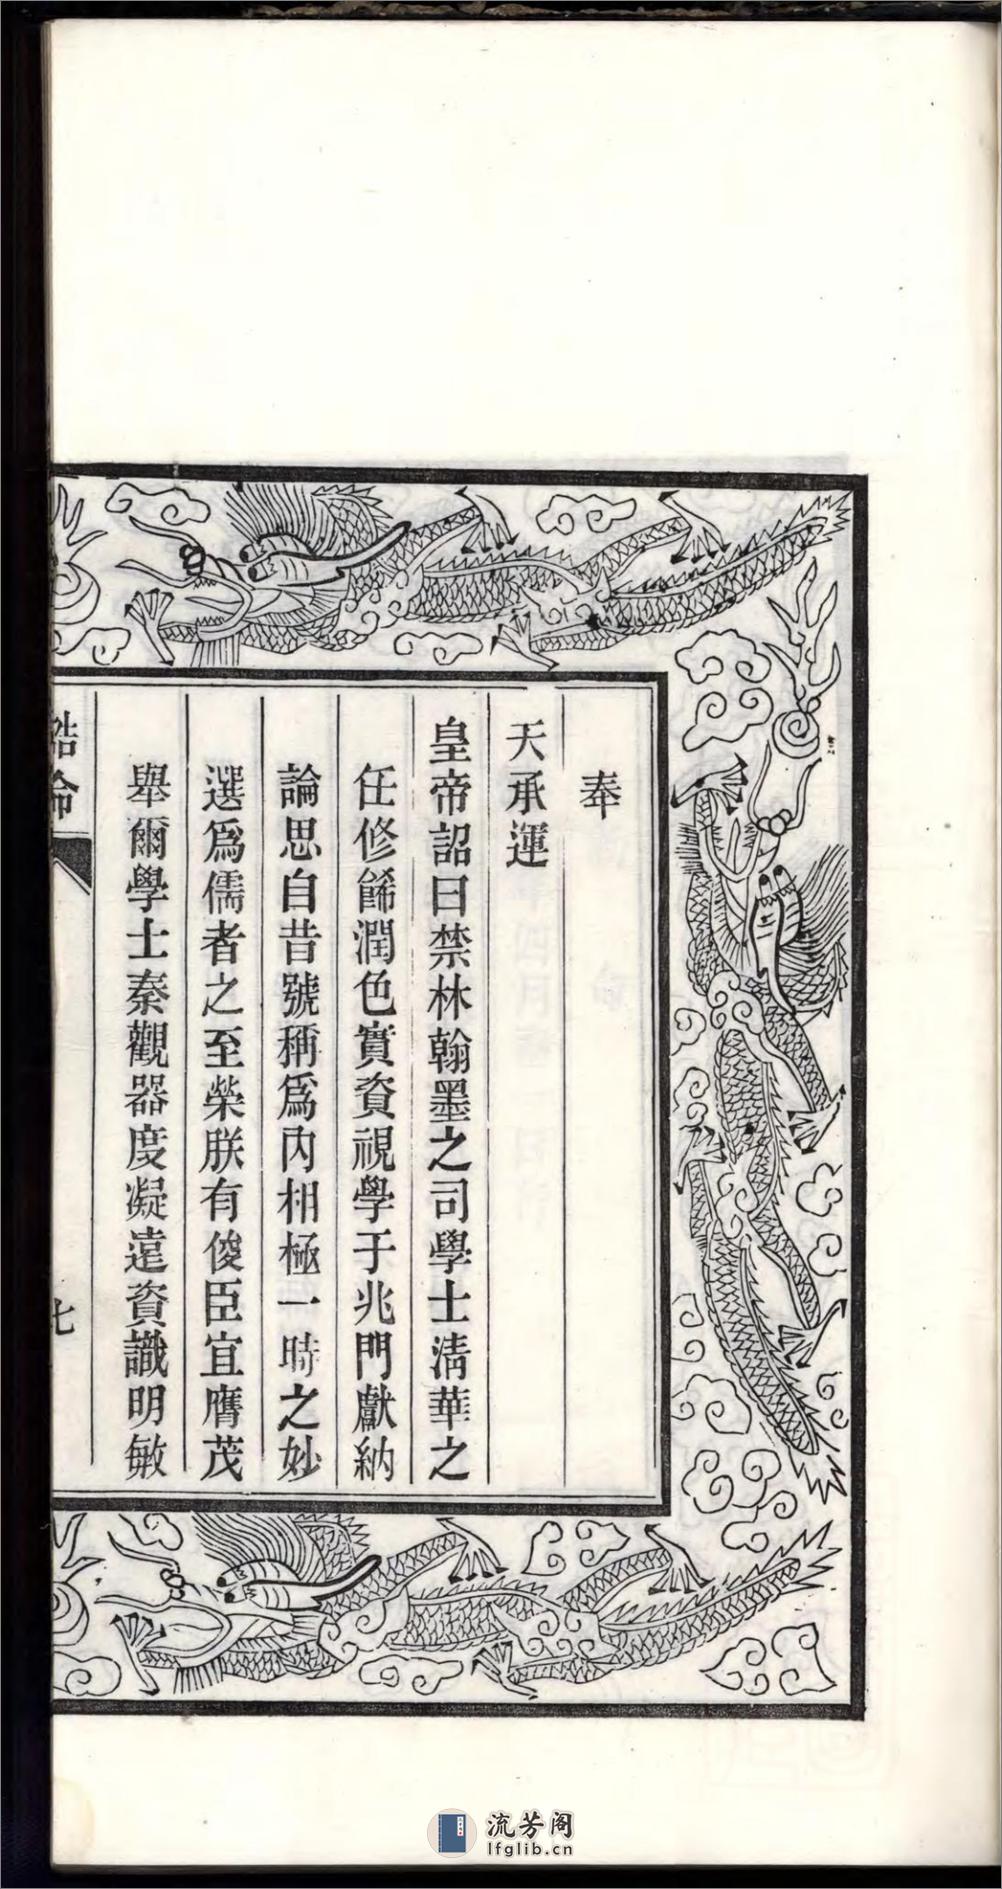 奉
天承運
皇帝詔曰禁林翰墨之司學士清華之
任修餙潤色實資視學于兆門獻納
論思自昔號稱爲内相極一時之妙
選爲儒者之至榮朕有俊臣宜膺茂
舉爾學士秦觀器度凝遠資識明敏
誥命
七
流芳阁
lfglib.cn